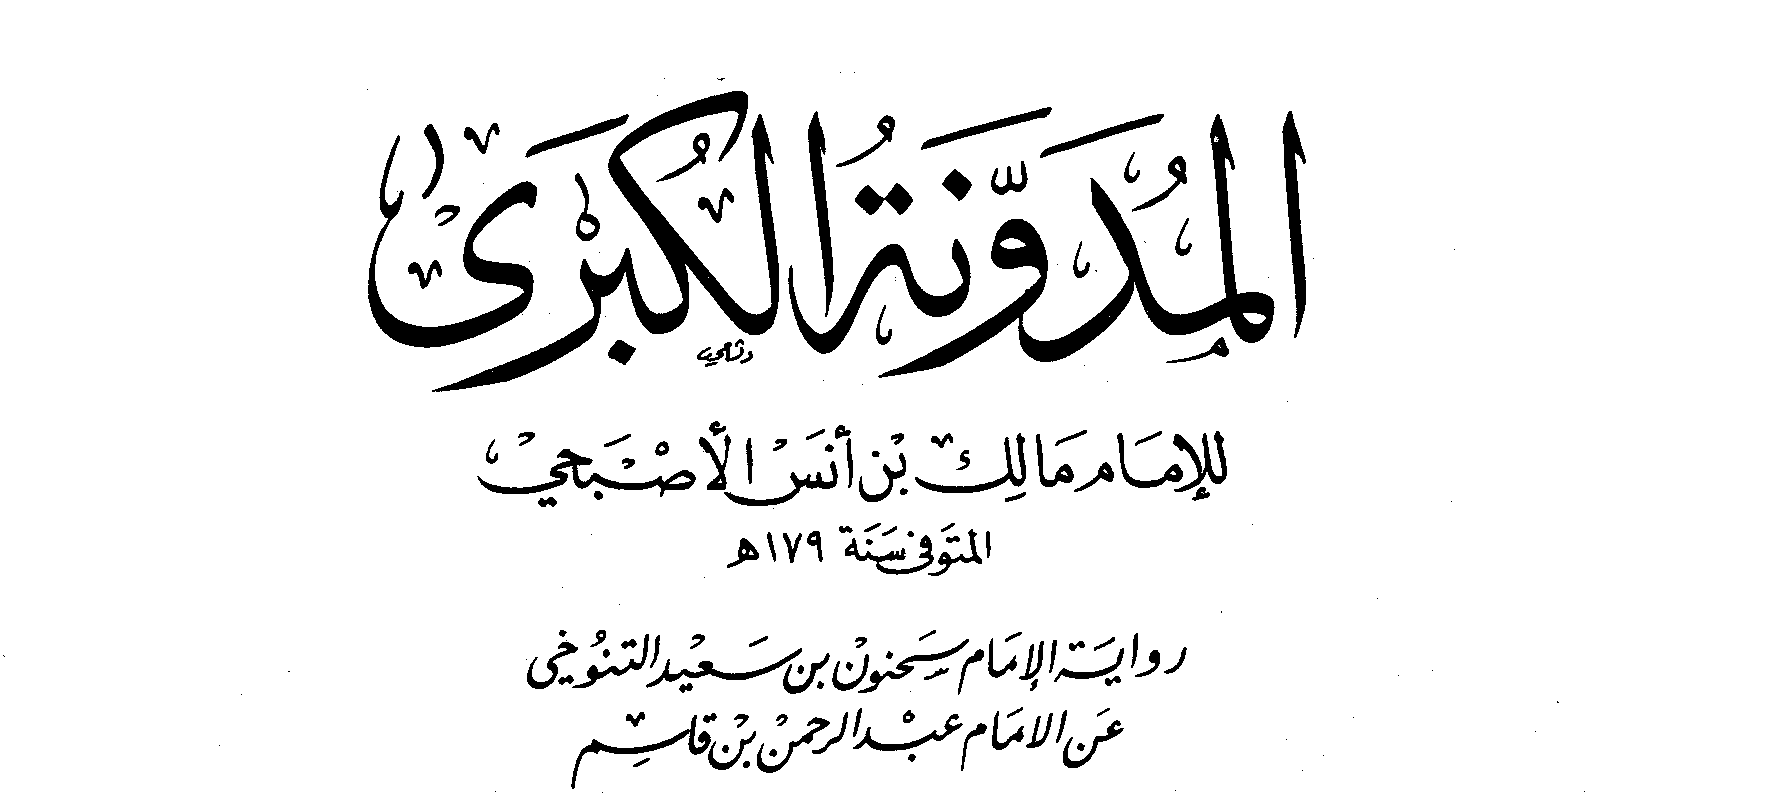 المُدَوَّنَةُ الكُبْرَى
للإمَام مَالِك بْن أنَسَ الأصْبَحي
المتوَفى سَنَة ١٧٩ هـ
رواية الإمَام سَحنون بن سَعيد التنوُخي
عَن الامَام عبْد الرحمن بْن قاسِم